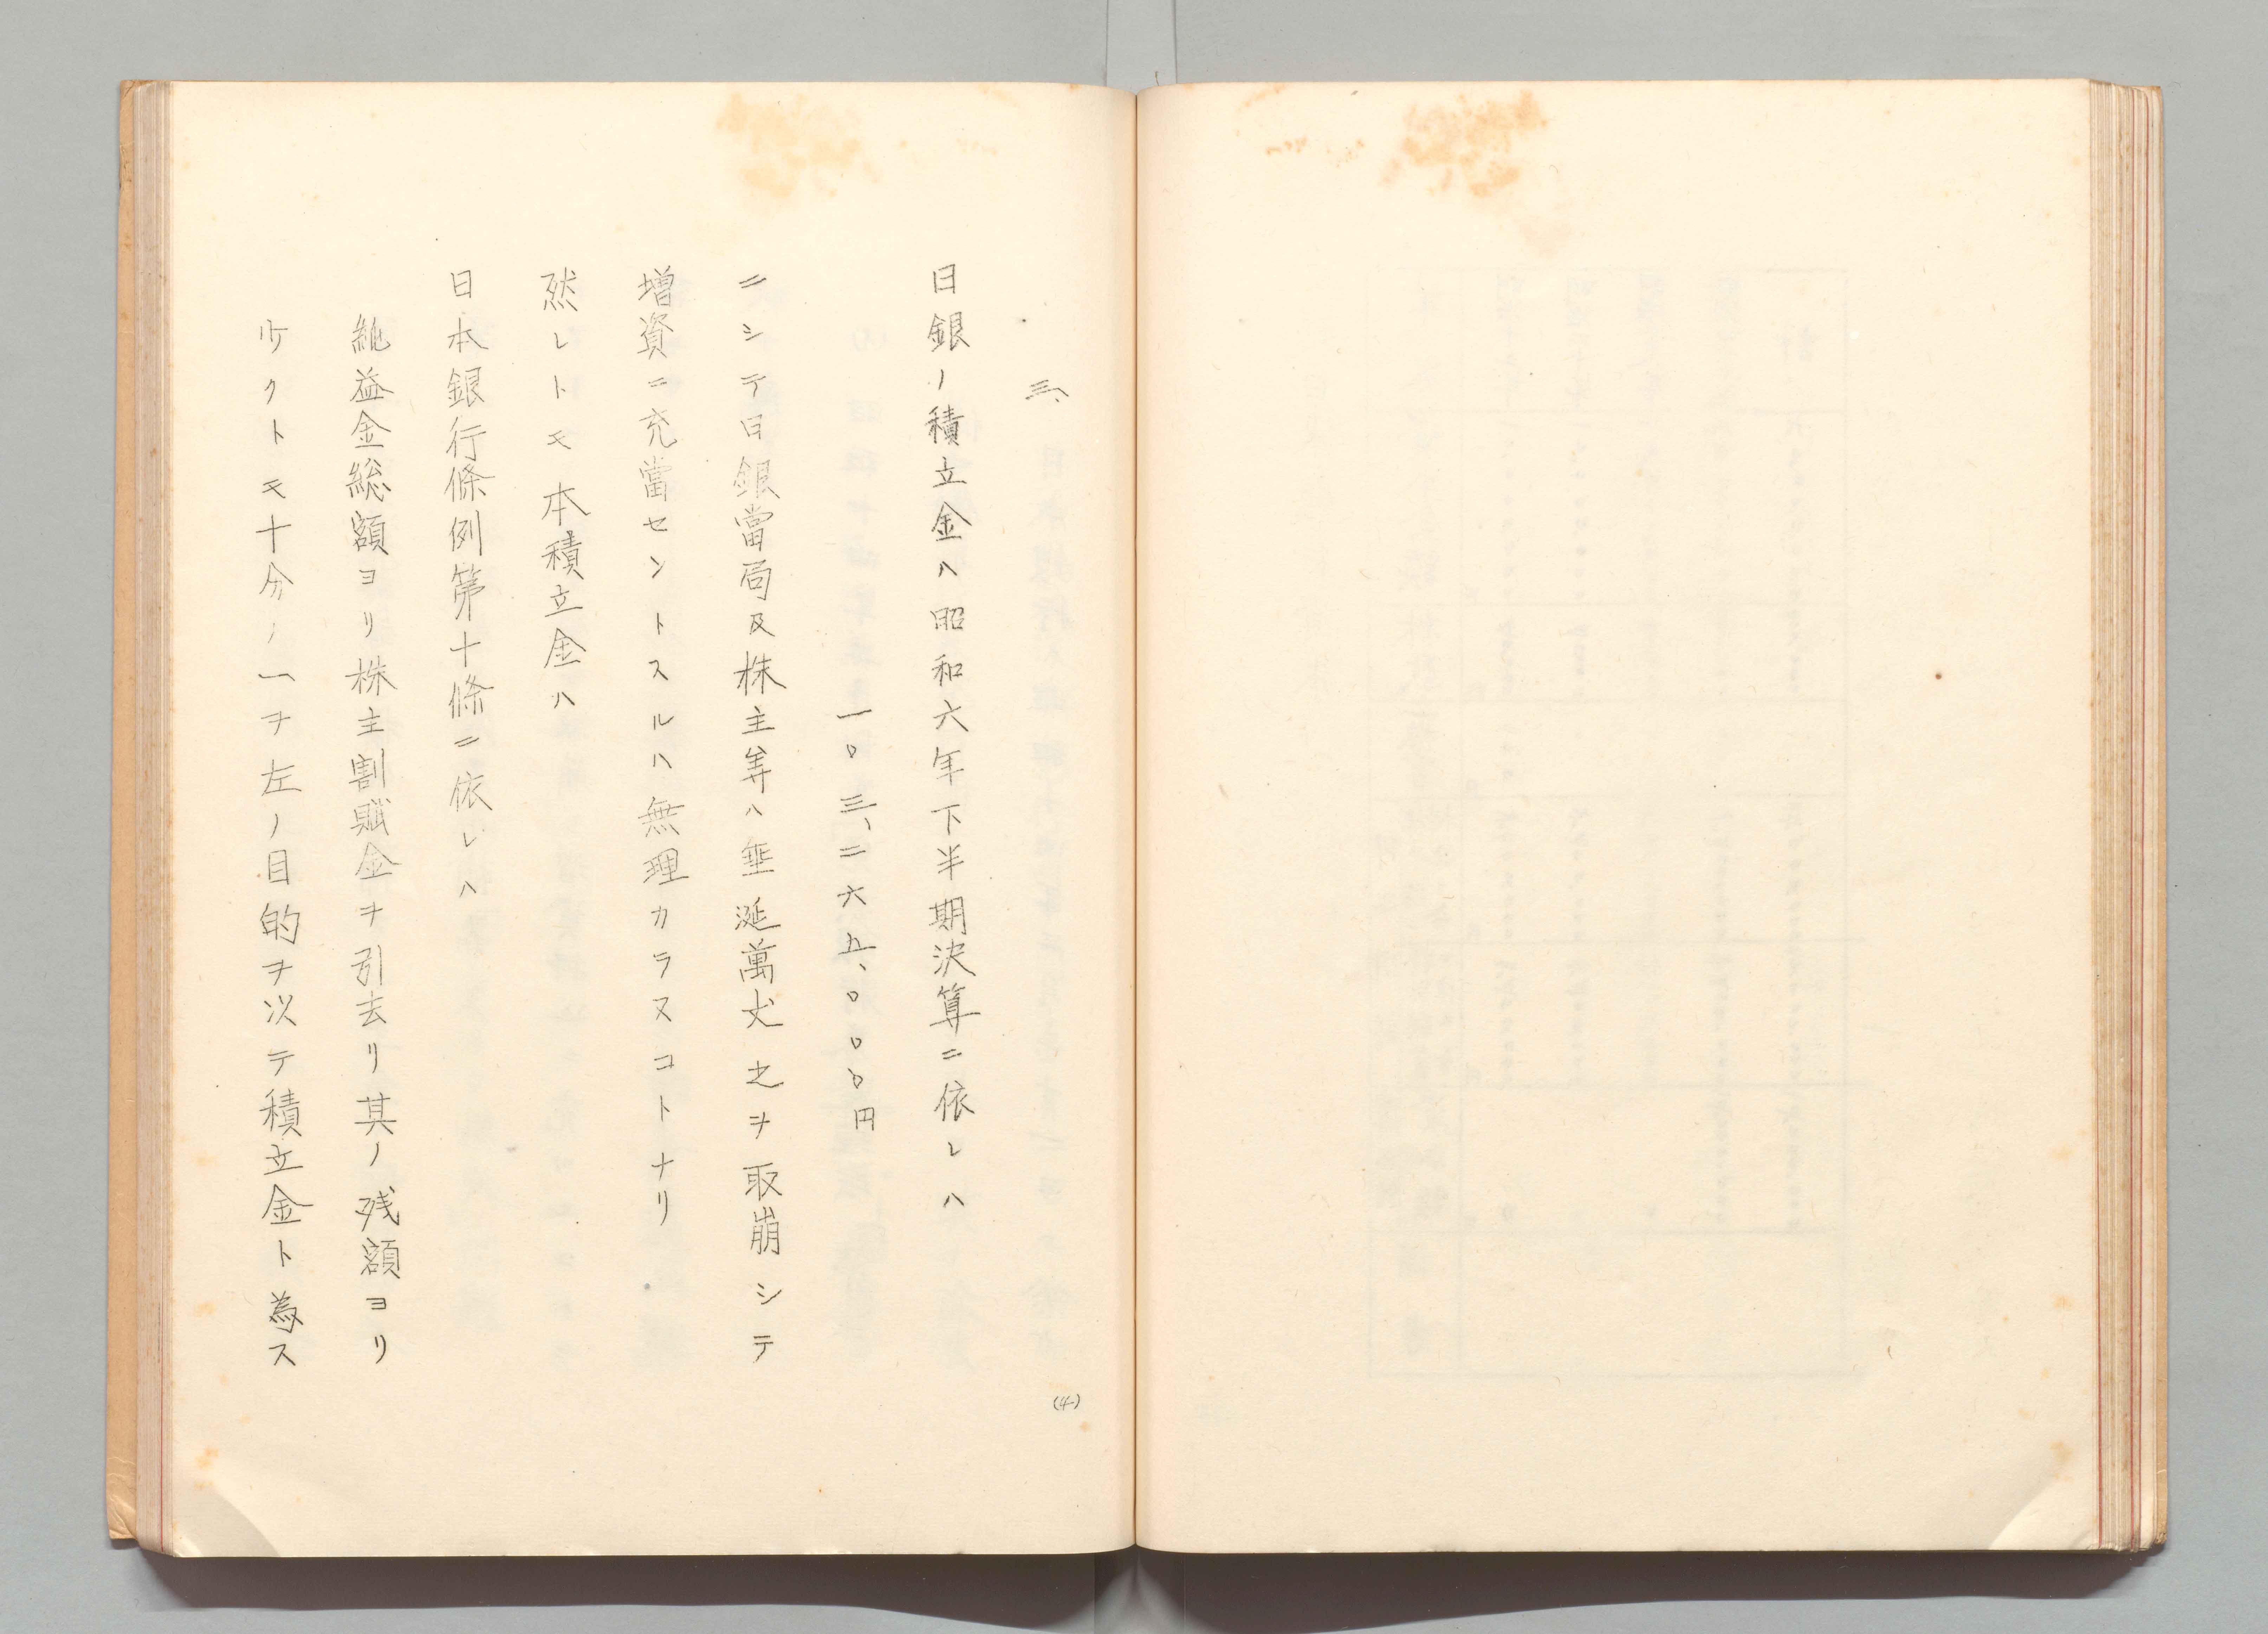 三、
日銀ノ積立金ハ昭和六年下半期決算ニ依レハ
一〇三、二六五、〇〇〇円
ニシテ日銀當局及株主等ハ垂涎萬丈之ヲ取崩シテ
増資ニ充當セントスルハ無理カラヌコトナリ
然レトモ本積立金ハ
日本銀行條例第十條ニ依レハ
純益金総額ヨリ株主割賦金ヲ引去リ其ノ残額ヨリ
少クトモ十分ノ一ヲ左ノ目的ヲ以テ積立金ト為ス
(4)